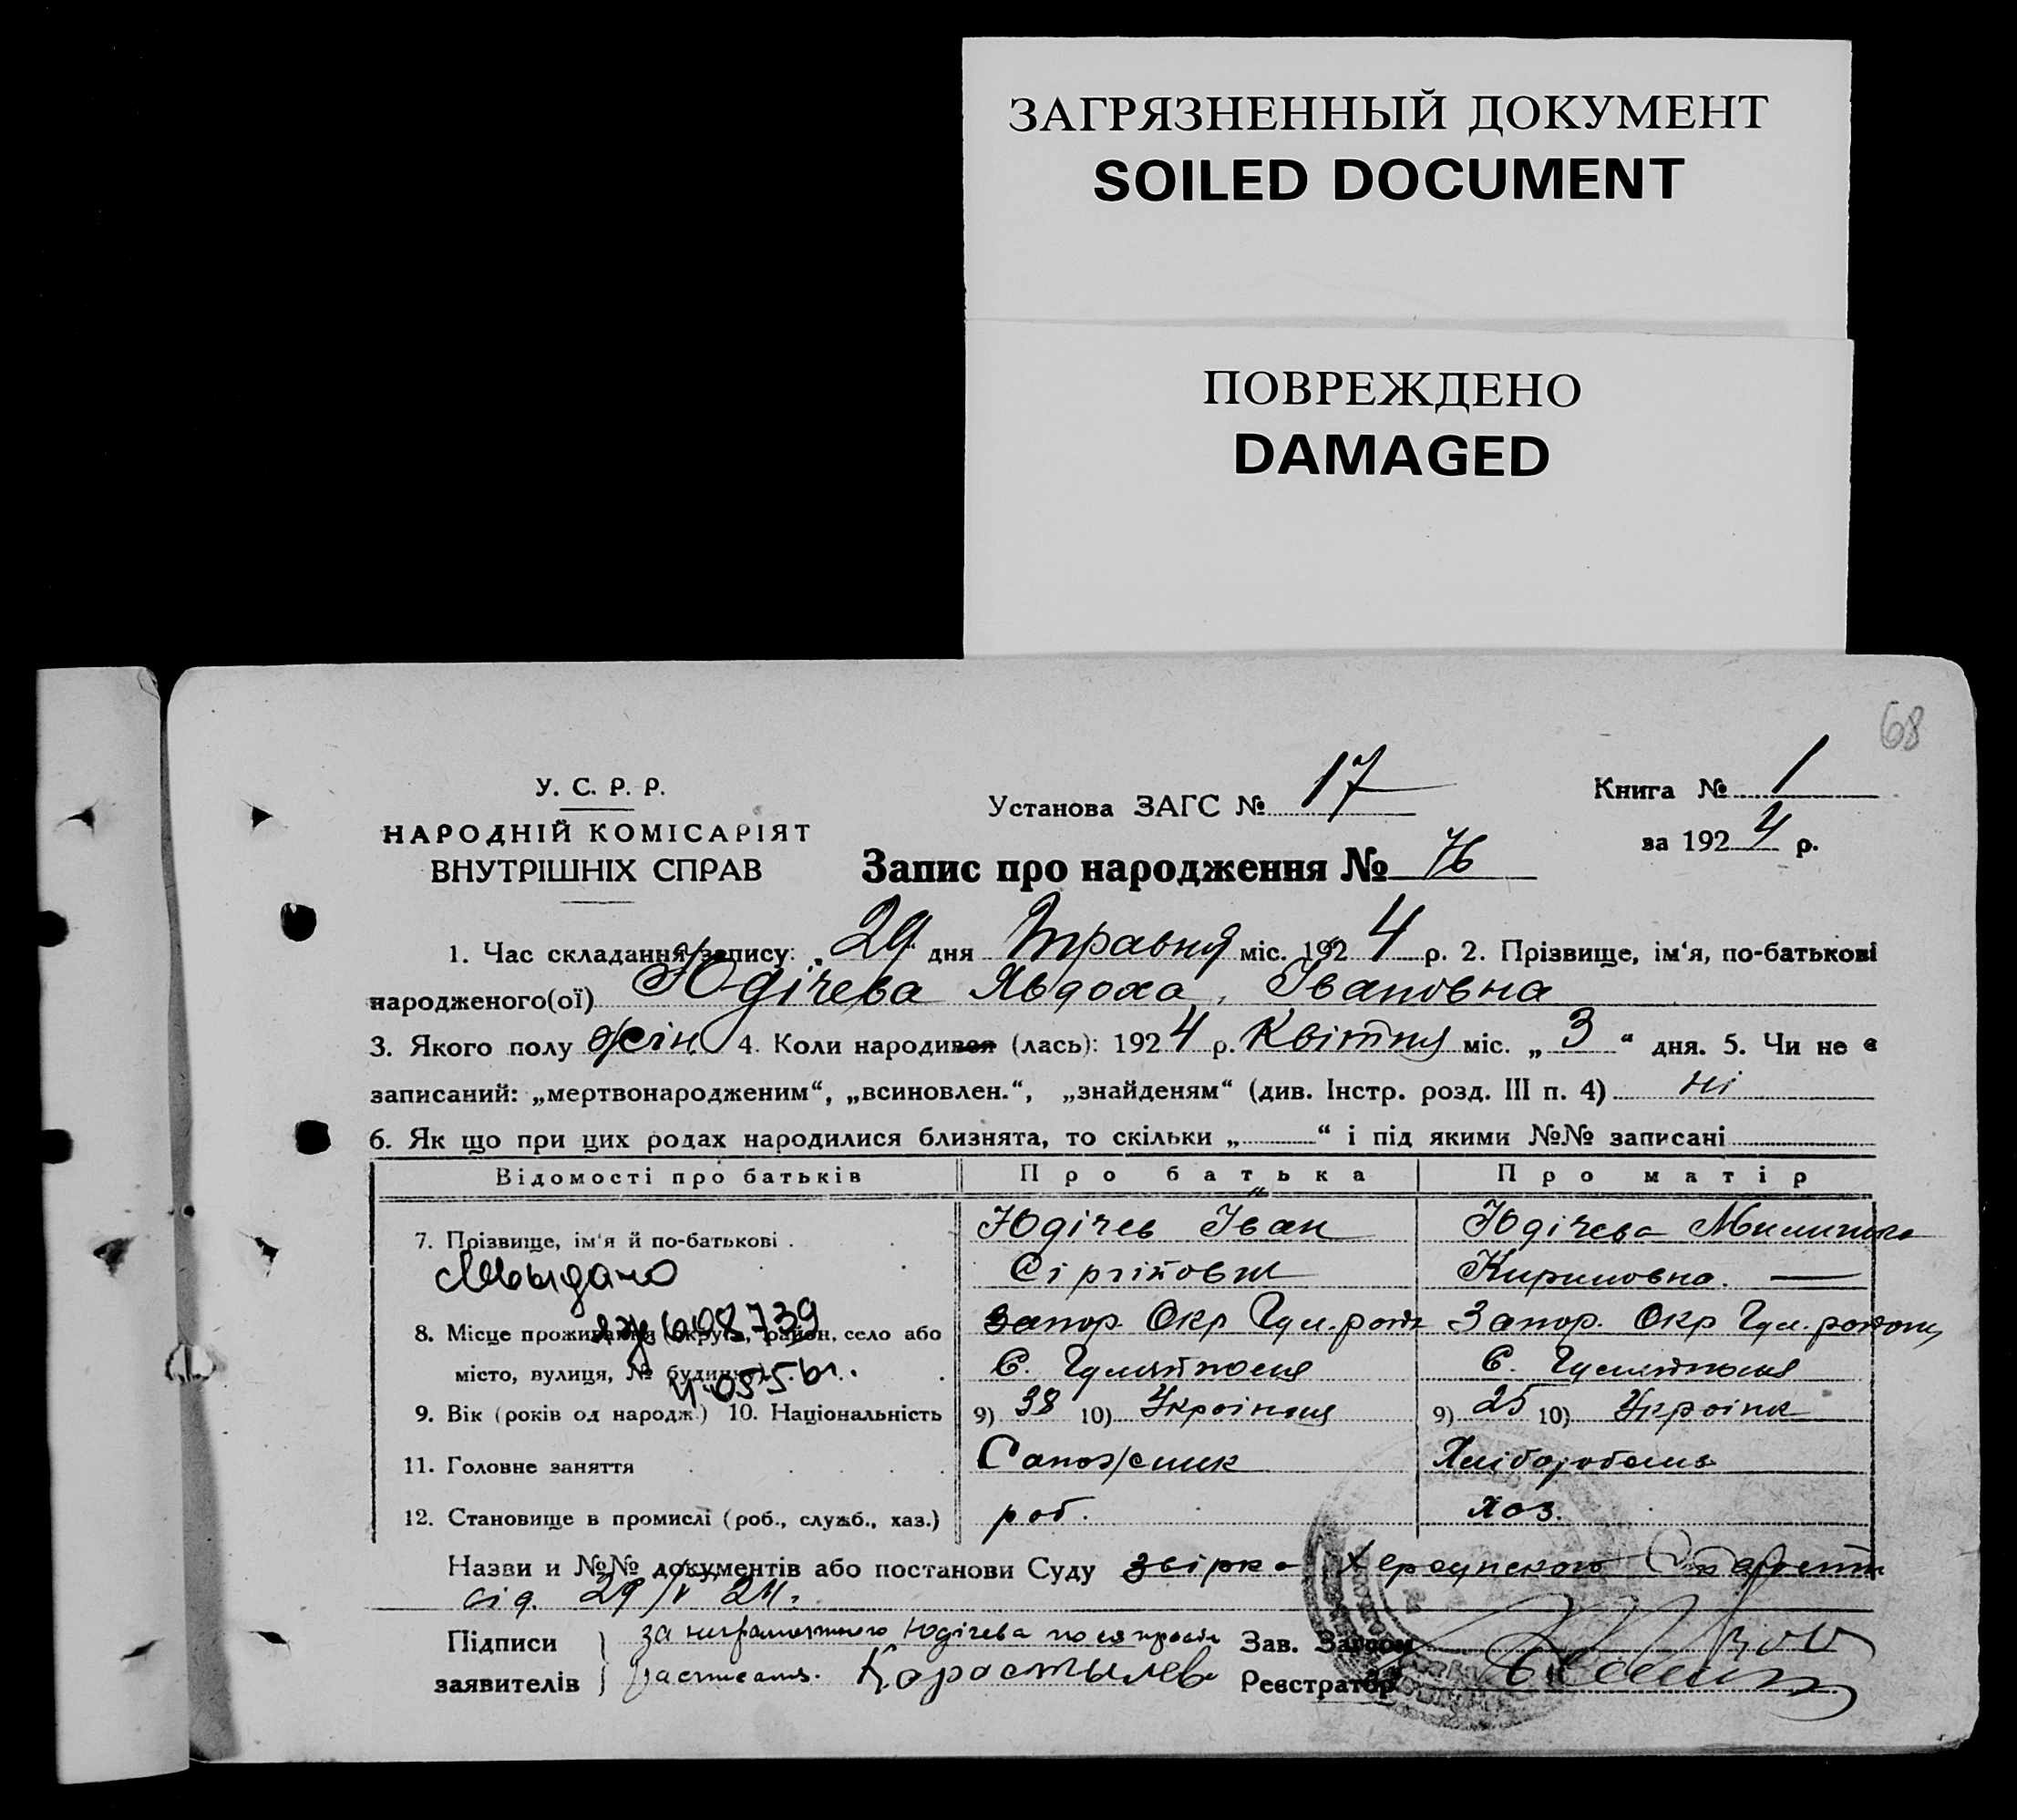 ЗАГРЯЗНЕННЫЙ ДОКУМЕНТ
SOILED DOCUMENT
ПОВРЕЖДЕНО
DAMAGED
68
У. С. Р. Р.
НАРОДНІЙ КОМІСАРІЯТ
ВНУТРІШНІХ СПРАВ
Установа ЗАГС № 17
Книга № 1
за 1924 р.
Запис про народження № 76
1. Час складання запису: „29“ дня Травня міс. 1924 р. 2. Прізвище, ім‘я, по-батькові
народженого(ої) Юдічева Явдоха, Івановна
3. Якого полу жін. 4. Коли народився (лась): 1924 р. Квітня міс. „3“ дня. 5. Чи не є
записаний: „мертвонародженим“, „всиновлен.“, „знайденям“ (див. Інстр. розд. III п. 4) ні
6. Як що при цих родах народилися близнята, то скільки „ “ і під якими №№ записані
Відомості про батьків Про батька Про матір
7. Прізвище, ім‘я й по-батькові . Юдічев Іван Юдічева
Кириловна.
8. Місце проживання (округа, район, село або Запор. Окр Гул. Запор. Окр Гул.
698739
місто, вулиця, № будинку) С. Гуляйполя С. Гуляйполя
9. Вік (років од народж.) 10. Національність 9) 38 10) Українец 9) 25 10) Українк
11. Головне заняття Сапожник Хлібороб
12. Становище в промислі (роб., служб., хаз.) роб. хоз.
Назви и №№ документів або постанови Суду
від 29/V 24.
Підписи заявителів за неграмотного Юдічева по его прозьбе
Коростылев
Зав. Загсом
Реєстратор